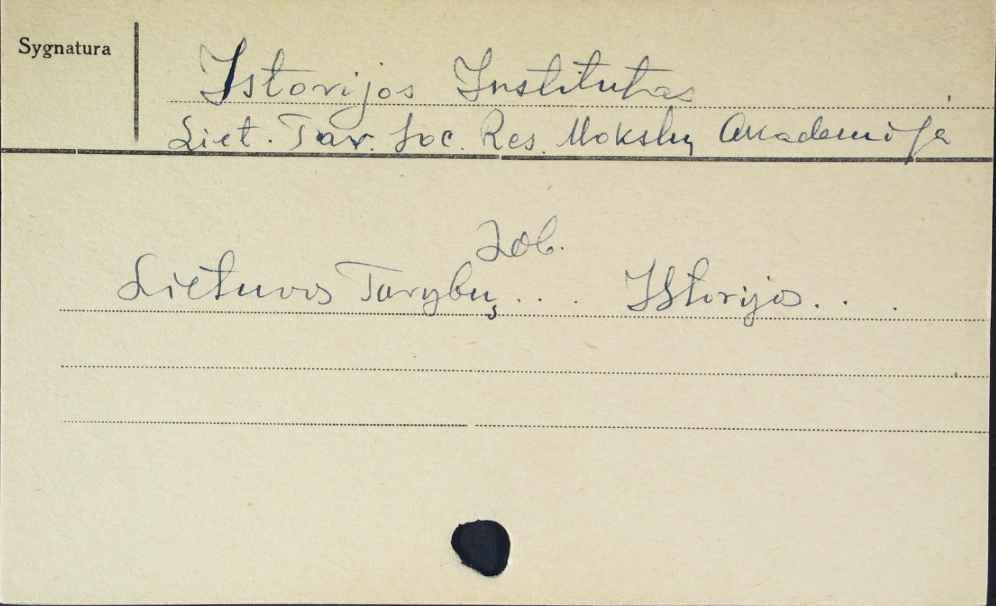 Sygnatura
Istorijos Institutas
Liet. Tar. Soc. Res. Mokslų Akademija
Zob.
Lietuvos Tarybų... Istorijos...